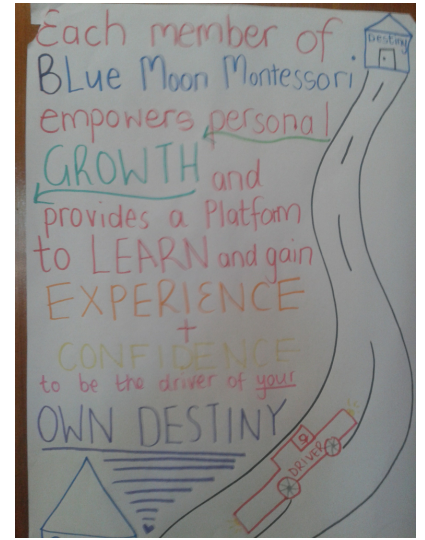 Each member of
Destiny
BLue Moon Montessori.
empowers personal
GROWTH and
provides a Platfom
to LEARN and gain
EXPERIENCE
+
CONFIDENCE
to be the driver of your
OWN DESTINY
DRIVER